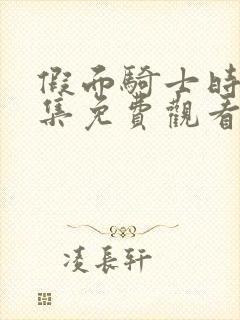 假面騎士時
集免費觀看
凌長軒